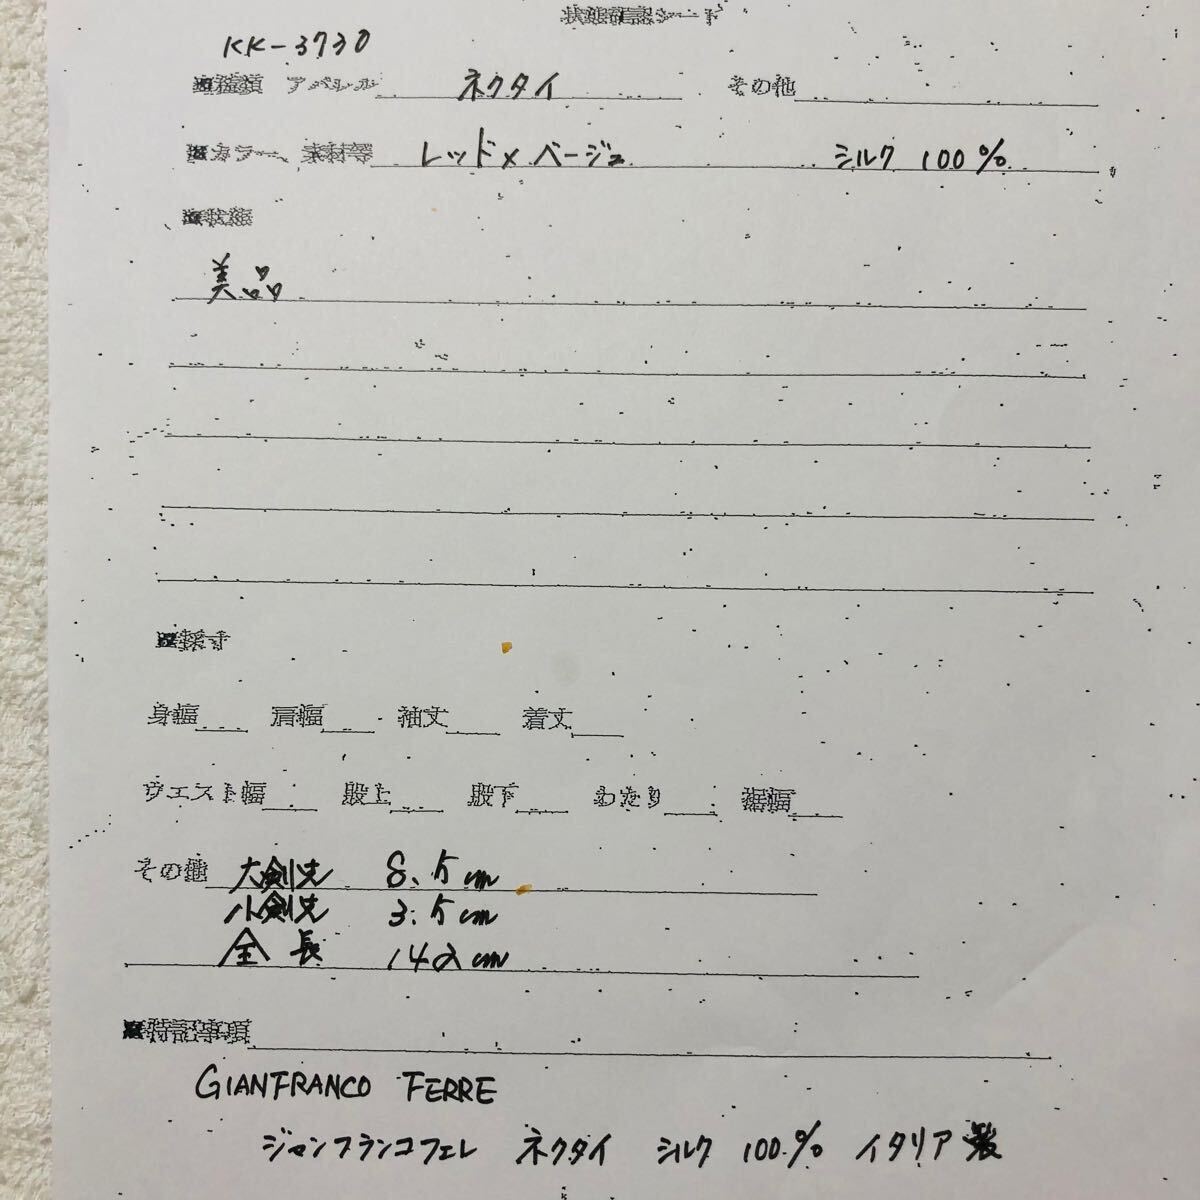 状態確認シート
KK-3730
■種類 アパレル ネクタイ その他
■カラー、素材等 レッド×ベージュ シルク 100%
■状態
美品
■採寸
身幅 肩幅 袖丈 着丈
ウエスト幅 股上 股下 わたり 裾幅
その他 大剣先 8.5cm
小剣先 3.5cm
全長 142cm
■特記事項
GIANFRANCO FERRE
ジャンフランコフェレ ネクタイ シルク 100% イタリア製